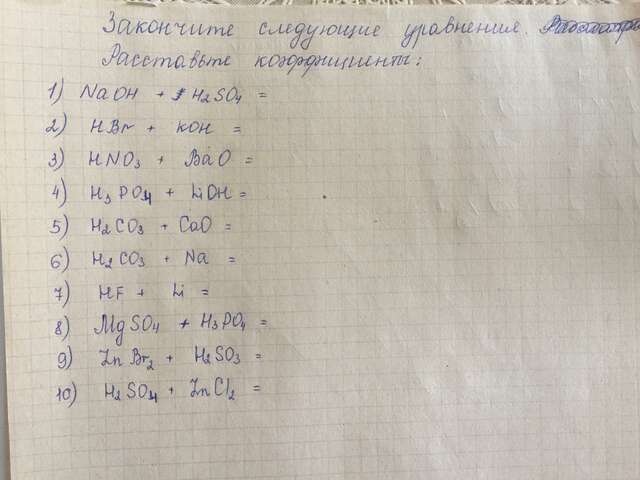 Закончите следующие уравнения.
Расставьте коэффициенты:
1) NaOH + H2SO4 =
2) HBr + KOH =
3) HNO3 + BaO =
4) H3PO4 + LiOH =
5) H2CO3 + CaO =
6) H2CO3 + Na =
7) HF + Li =
8) MgSO4 + H3PO4 =
9) ZnBr2 + H2SO3 =
10) H2SO4 + ZnCl2 =